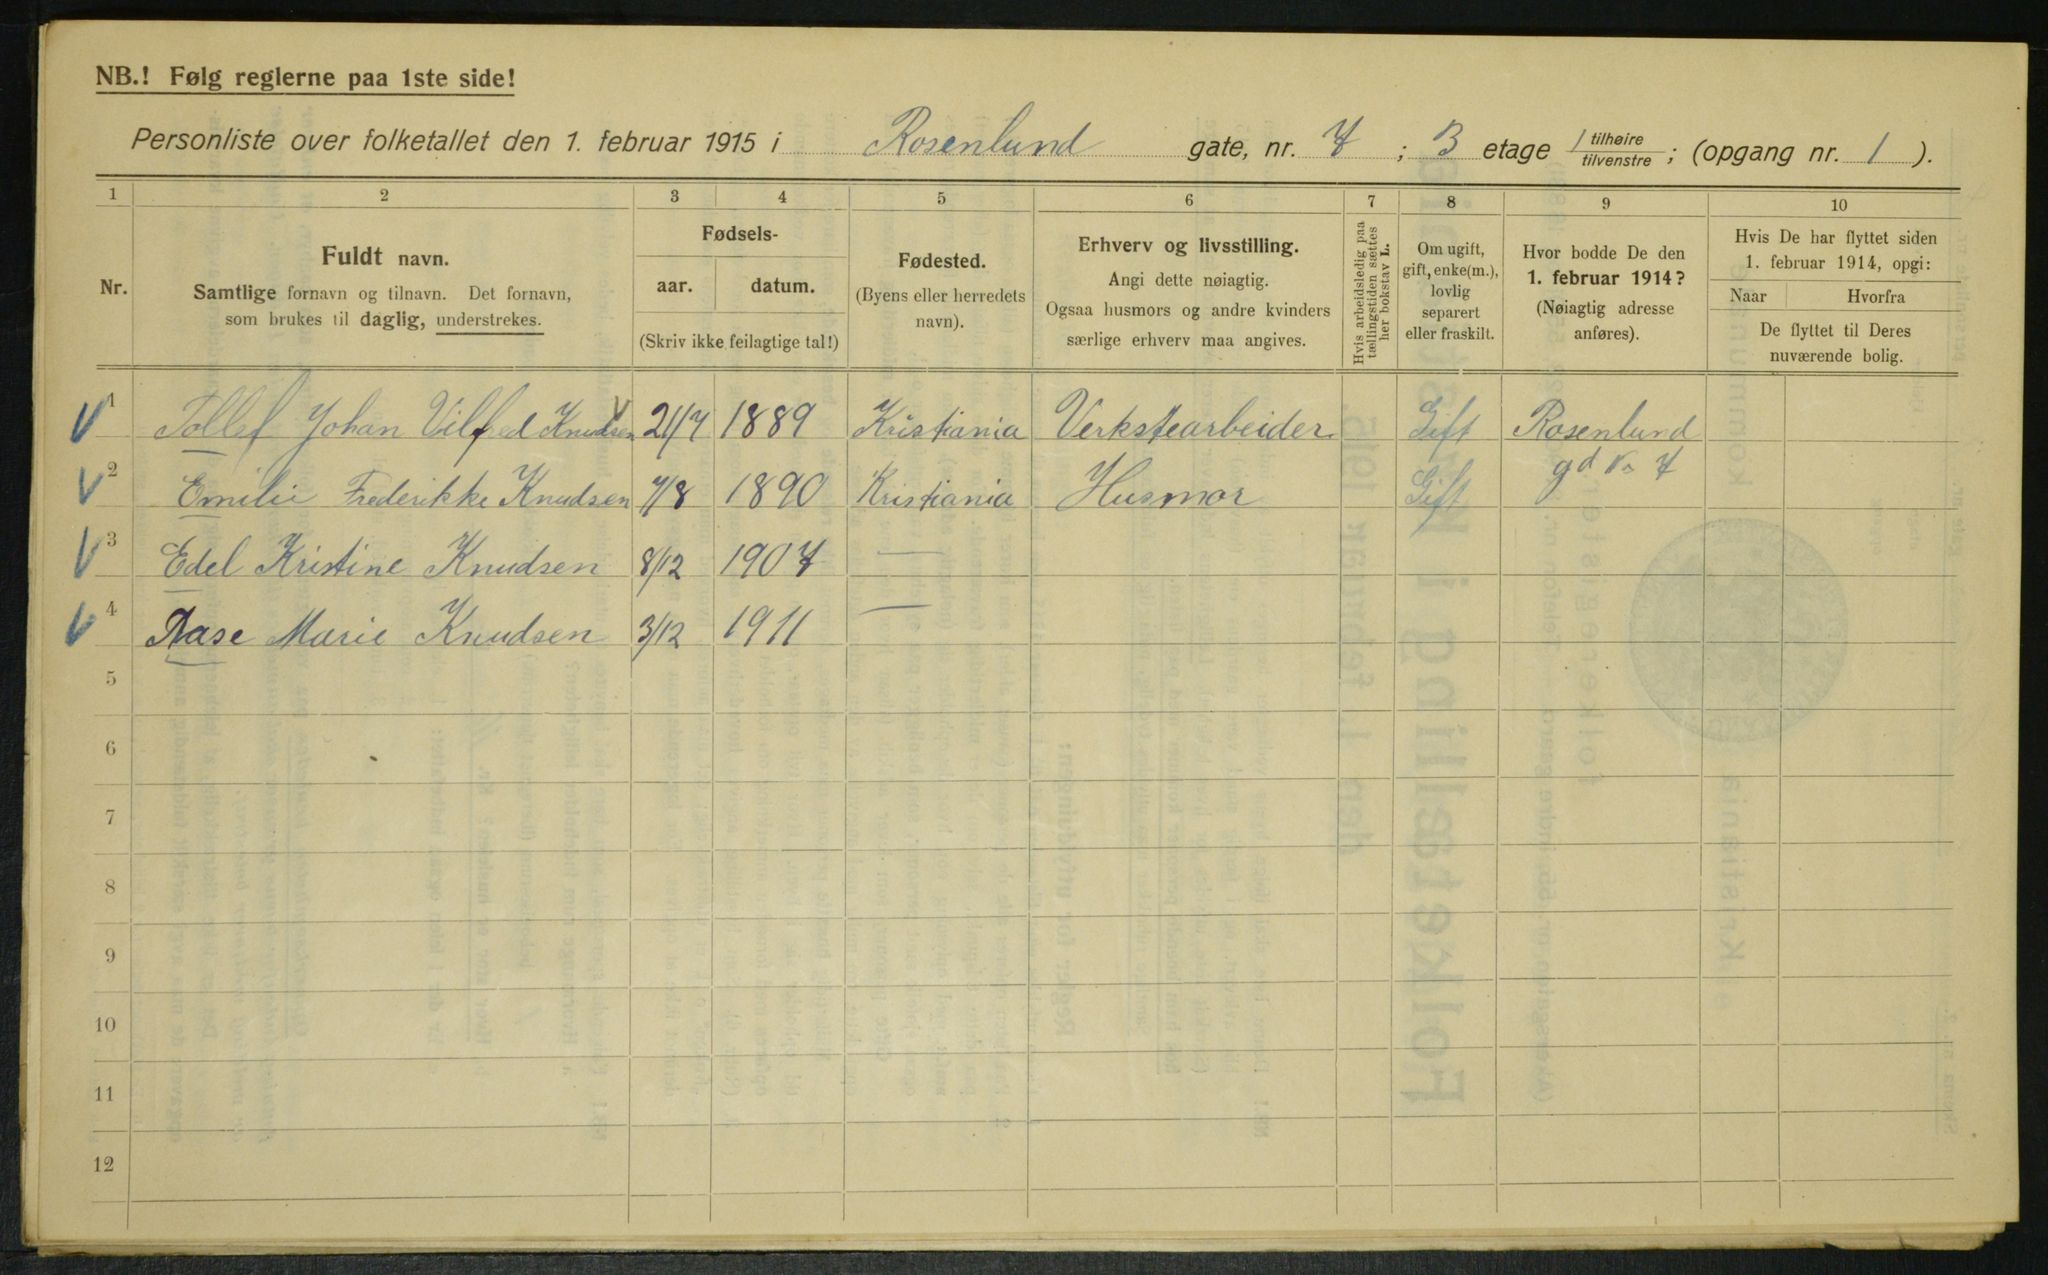 NB.! Følg reglerne paa 1ste side!
Personliste over folketallet den 1. februar 1915 i Rosenlund gate, nr. 7 ; 3 etage 1 tilhøire tilvenstre ; (opgang nr. 1 ).
1 2 3 4 5 6 7 8 9 10
Nr.
Fuldt navn.
Samtlige fornavn og tilnavn. Det fornavn,
som brukes til daglig, understrekes.
Fødsels-
aar. datum.
(Skriv ikke feilagtige tal!)
Fødested.
(Byens eller herredets
navn).
Erhverv og livsstilling.
Angi dette nøiagtig.
Ogsaa husmors og andre kvinders
særlige erhverv maa angives.
Hvis arbeidsledig paa
tællingstiden sættes
her bokstav L.
Om ugift,
gift, enke(m.),
lovlig
separert
eller fraskilt.
Hvor bodde De den
1. februar 1914?
(Nøiagtig adresse
anføres).
Hvis De har flyttet siden
1. februar 1914, opgi:
Naar Hvorfra
De flyttet til Deres
nuværende bolig.
1 Tollef Johan Vilfred Knudsen 21/7 1889 Kristiania Verkstearbeider Gift Rosenlund
2 Emilie Frederikke Knudsen 7/8 1890 Kristiania Husmor Gift gd No 7
3 Edel Kristine Knudsen 8/12 1907 —
4 Aase Marie Knudsen 3/12 1911 —
5
6
7
8
9
10
11
12